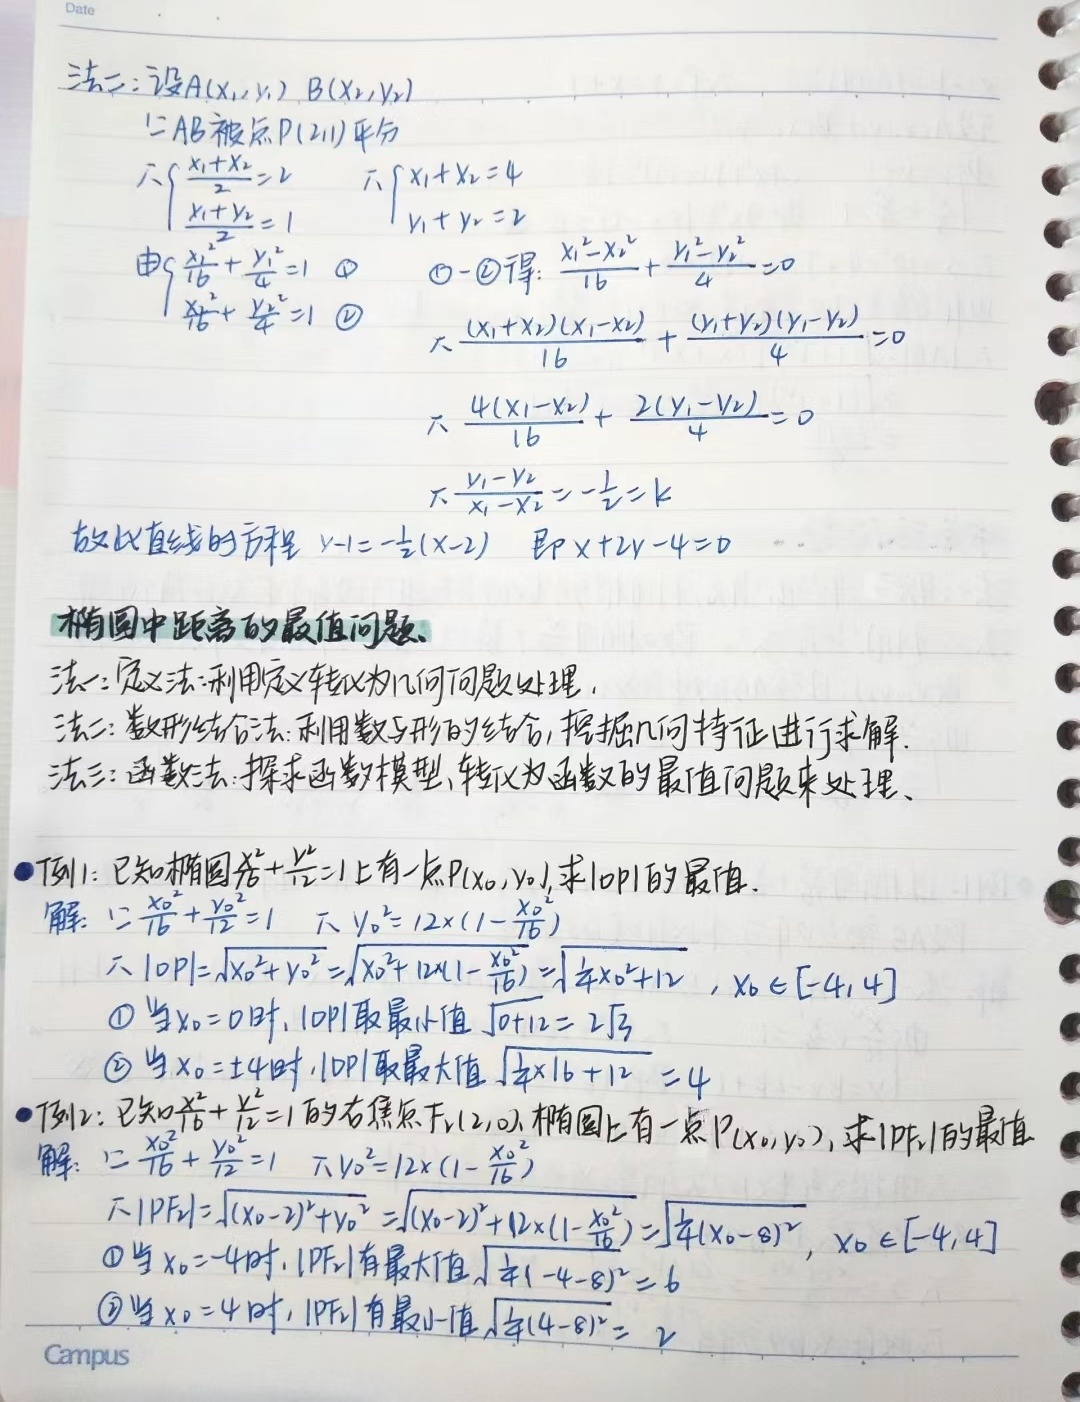 Date
法二:设A(x₁,y₁) B(x₂,y₂)
∵AB被点P(2,1)平分
∴{(x₁+x₂)/2=2 ∴{x₁+x₂=4
(x₁+y₂)/2=1 y₁+y₂=2
由{x₁²/16+y₁²/4=1 ① ①-②得:(x₁²-x₂²)/16+(y₁²-y₂²)/4=0
x₂²/16+y₂²/4=1 ②
∴(x₁+x₂)(x₁-x₂)/16+(y₁+y₂)(y₁-y₂)/4=0
∴4(x₁-x₂)/16+2(y₁-y₂)/4=0
∴(y₁-y₂)/(x₁-x₂)=-1/2=k
故此直线的方程 y-1=-1/2(x-2) 即x+2y-4=0
椭圆中距离的最值问题、
法一:定义法:利用定义转化为几何问题处理.
法二:数形结合法:利用数与形的结合,挖掘几何特征进行求解.
法三:函数法:探求函数模型、转化为函数的最值问题来处理、
●例1:已知椭圆x²/16+y²/12=1上有一点P(x₀,y₀),求|OP|的最值.
解:∵x₀²/16+y₀²/12=1 ∴y₀²=12×(1-x₀²/16)
∴|OP|=√(x₀²+y₀²)=√(x₀²+12×(1-x₀²/16))=√(1/4x₀²+12),x₀∈[-4,4]
①当x₀=0时,|OP|取最小值√(0+12)=2√3
②当x₀=±4时,|OP|取最大值√(1/4×16+12)=4
●例2:已知x²/16+y²/12=1的右焦点F₂(2,0),椭圆上有一点P(x₀,y₀),求|PF₂|的最值
解:∵x₀²/16+y₀²/12=1 ∴y₀²=12×(1-x₀²/16)
∴|PF₂|=√((x₀-2)²+y₀²)=√((x₀-2)²+12×(1-x₀²/16))=√(1/4(x₀-8)²),x₀∈[-4,4]
①当x₀=-4时,|PF₂|有最大值√(1/4(-4-8)²)=6
②当x₀=4时,|PF₂|有最小值√(1/4(4-8)²)=2
Campus